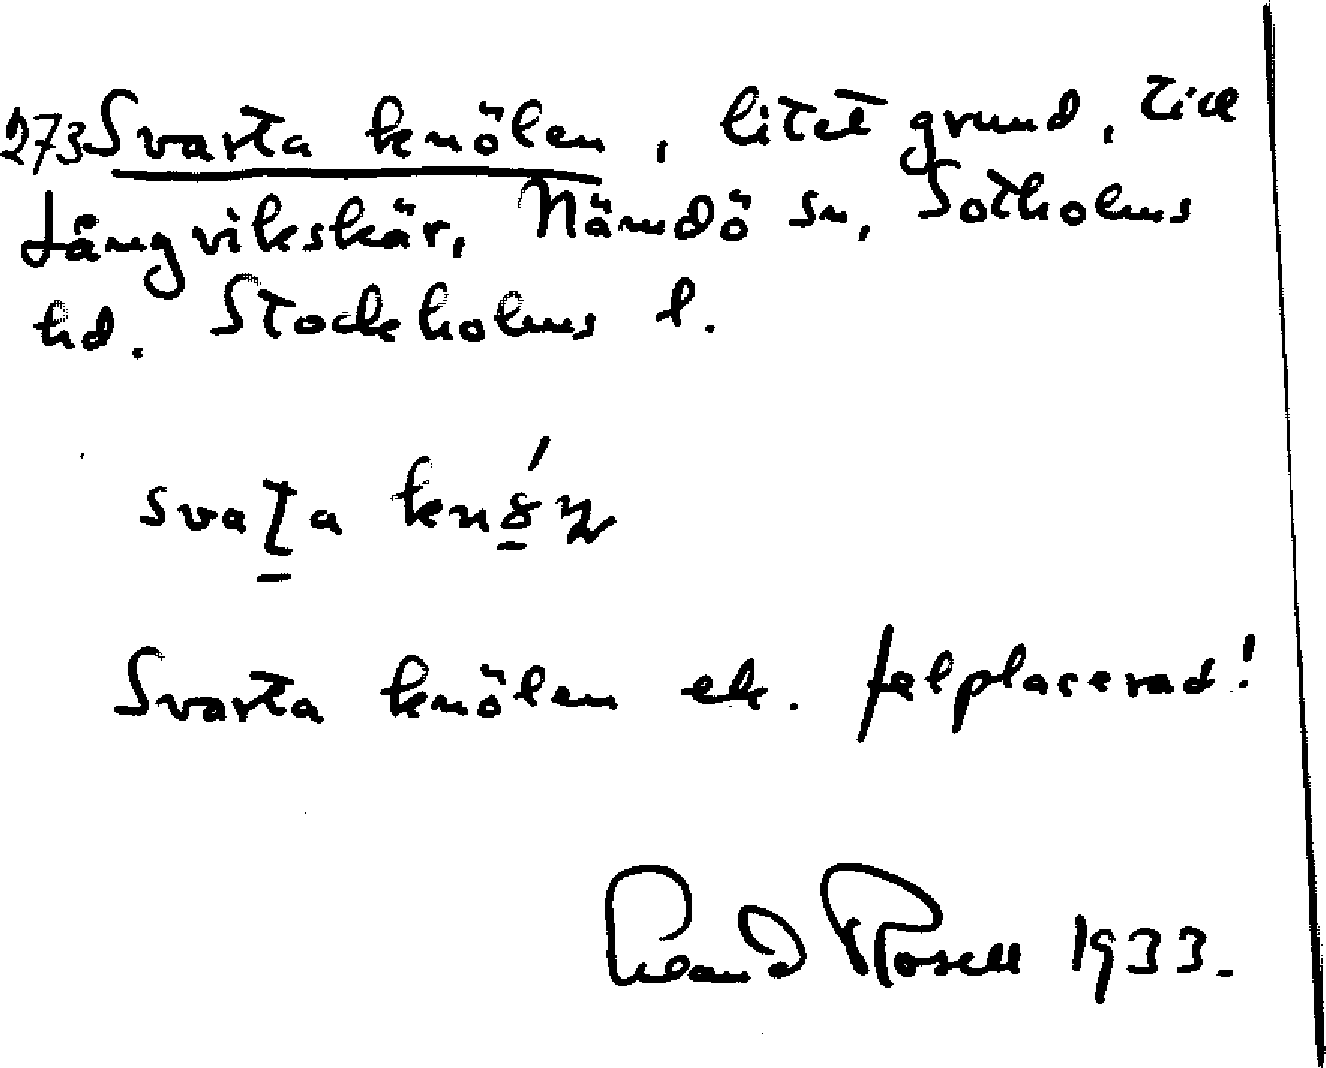 273 Svarta knölen, litet grund, till
Långvikskär, Nämdö sn, Sotholms
hd. Stockholms l.
Svarta knölen ek. felplacerad!
Rosell 1933.